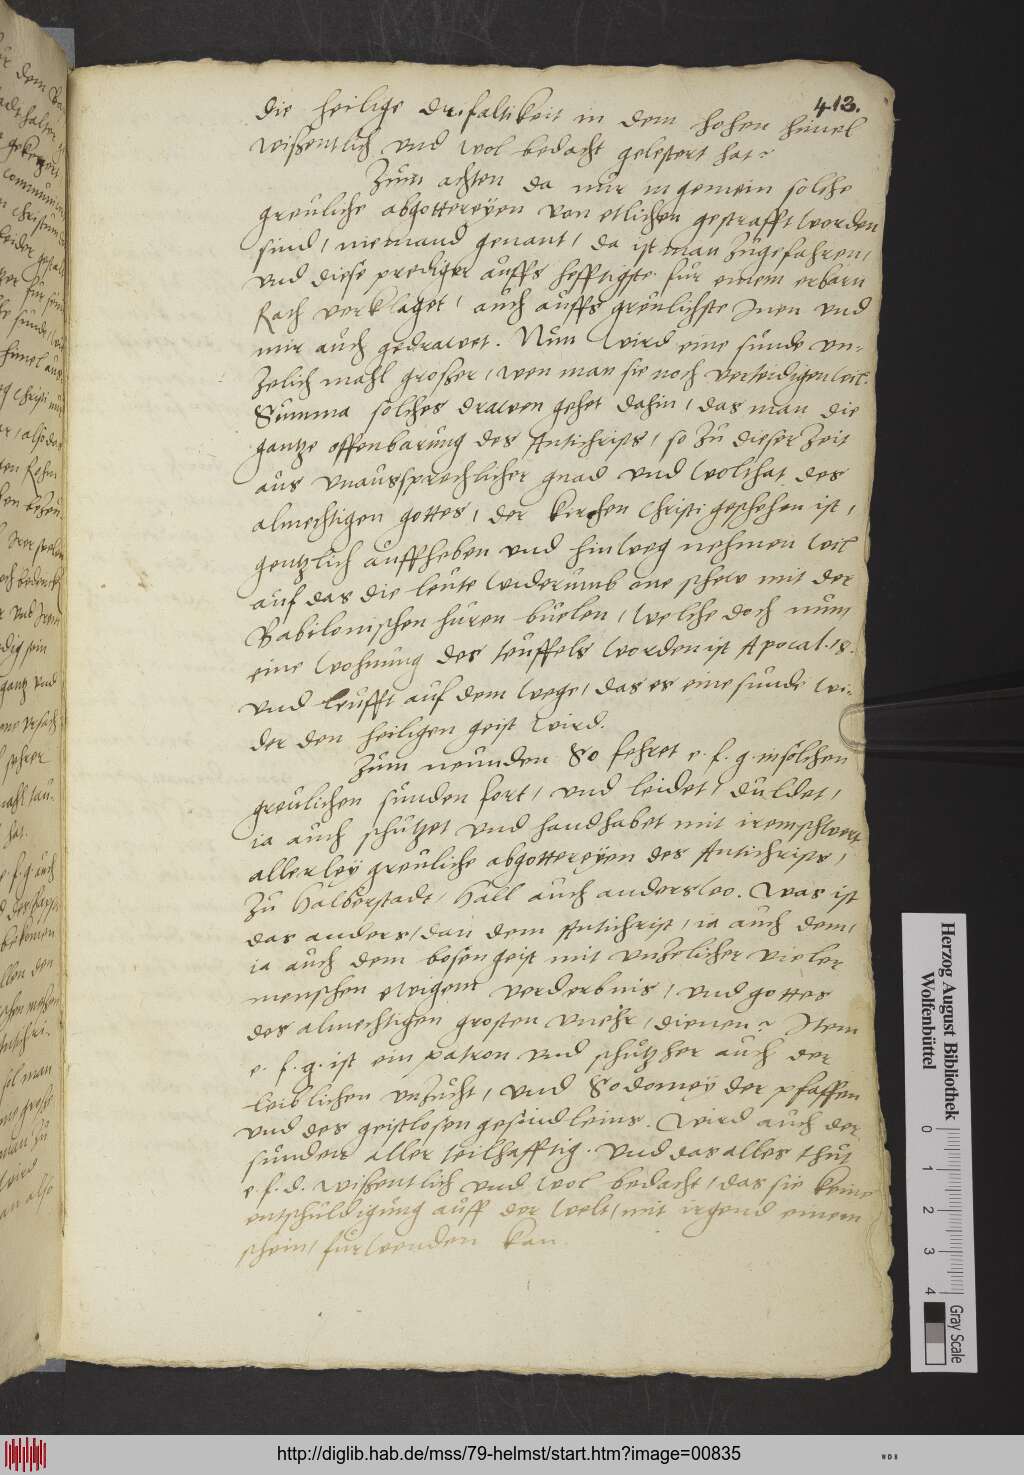 413.
die heilige drifaltikeit in dem hohen himel
wißentlich vnd wol bedacht gelestert hat?
Zum achten da nur in gemein solche
greuliche abgottereyen von etlichen gestrafft worden
sind, niemand genant, da ist man zugefahren,
vnd diese prediger auffs hefftigste fur einem erbarn
Rath verklaget, auch auffs greulichste Inen vnd
mir auch gedrawet. Nun wird eine sunde vn-
zelich mahl großer, wen man sie noch verteidigen wil.
Summa solches drawen gehet dahin, das man die
gantze offenbarung des Antichrists, so zu dieser zeit
aus vnaussprechlicher gnad vnd wolthat des
almechtigen gottes, der kirchen Christi geschehen ist,
gentzlich auffheben vnd hinweg nehmen wil
auf das die leute widerumb one schew mit der
Babilonischen huren buelen, welche doch num
eine wohnung des teuffels worden ist Apocal. 18.
vnd leufft auf dem wege, das es eine sunde wi-
der den heiligen geist wird.
Zum neunden So fehret e. f. g. in solchen
greulichen sunden fort, vnd leidet, duldet,
ia auch schutzet vnd handhabet mit irem schwert
allerley greuliche abgottereyen des Antichrists,
zu Halberstadt, Hall auch anderswo. Was ist
das anders, dan dem Antichrist, ia auch dem,
ia auch dem bosen geist mit vnzelicher vieler
menschen ewigem verderbnis, vnd gottes
des almechtigen grosten vnehr, dienen? Item
e. f. g. ist ein patron vnd schutzher auch der
leiblichen vnzucht, vnd Sodomey der pfaffen
vnd des geistlosen gesindleins. Wird auch der
sunden aller teilhafftig. Vnd das alles thut
e. f. g. wißentlich vnd wol bedacht, das sie keine
entschuldigung auff der welt, mit irgend einem
schein, furwenden kan.
Herzog August Bibliothek
Wolfenbüttel
0 1 2 3 4
Gray Scale
http://diglib.hab.de/mss/79-helmst/start.htm?image=00835